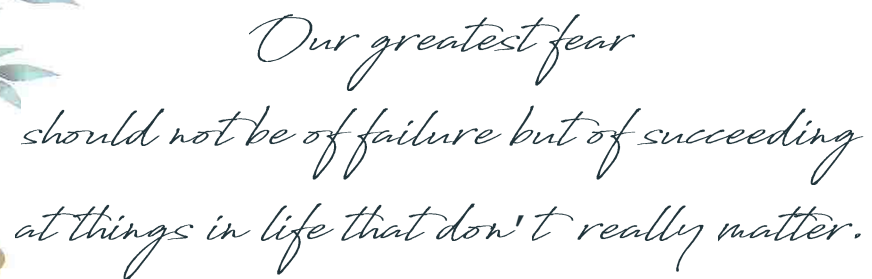 Our greatest fear
should not be of failure but of succeeding
at things in life that don't really matter.